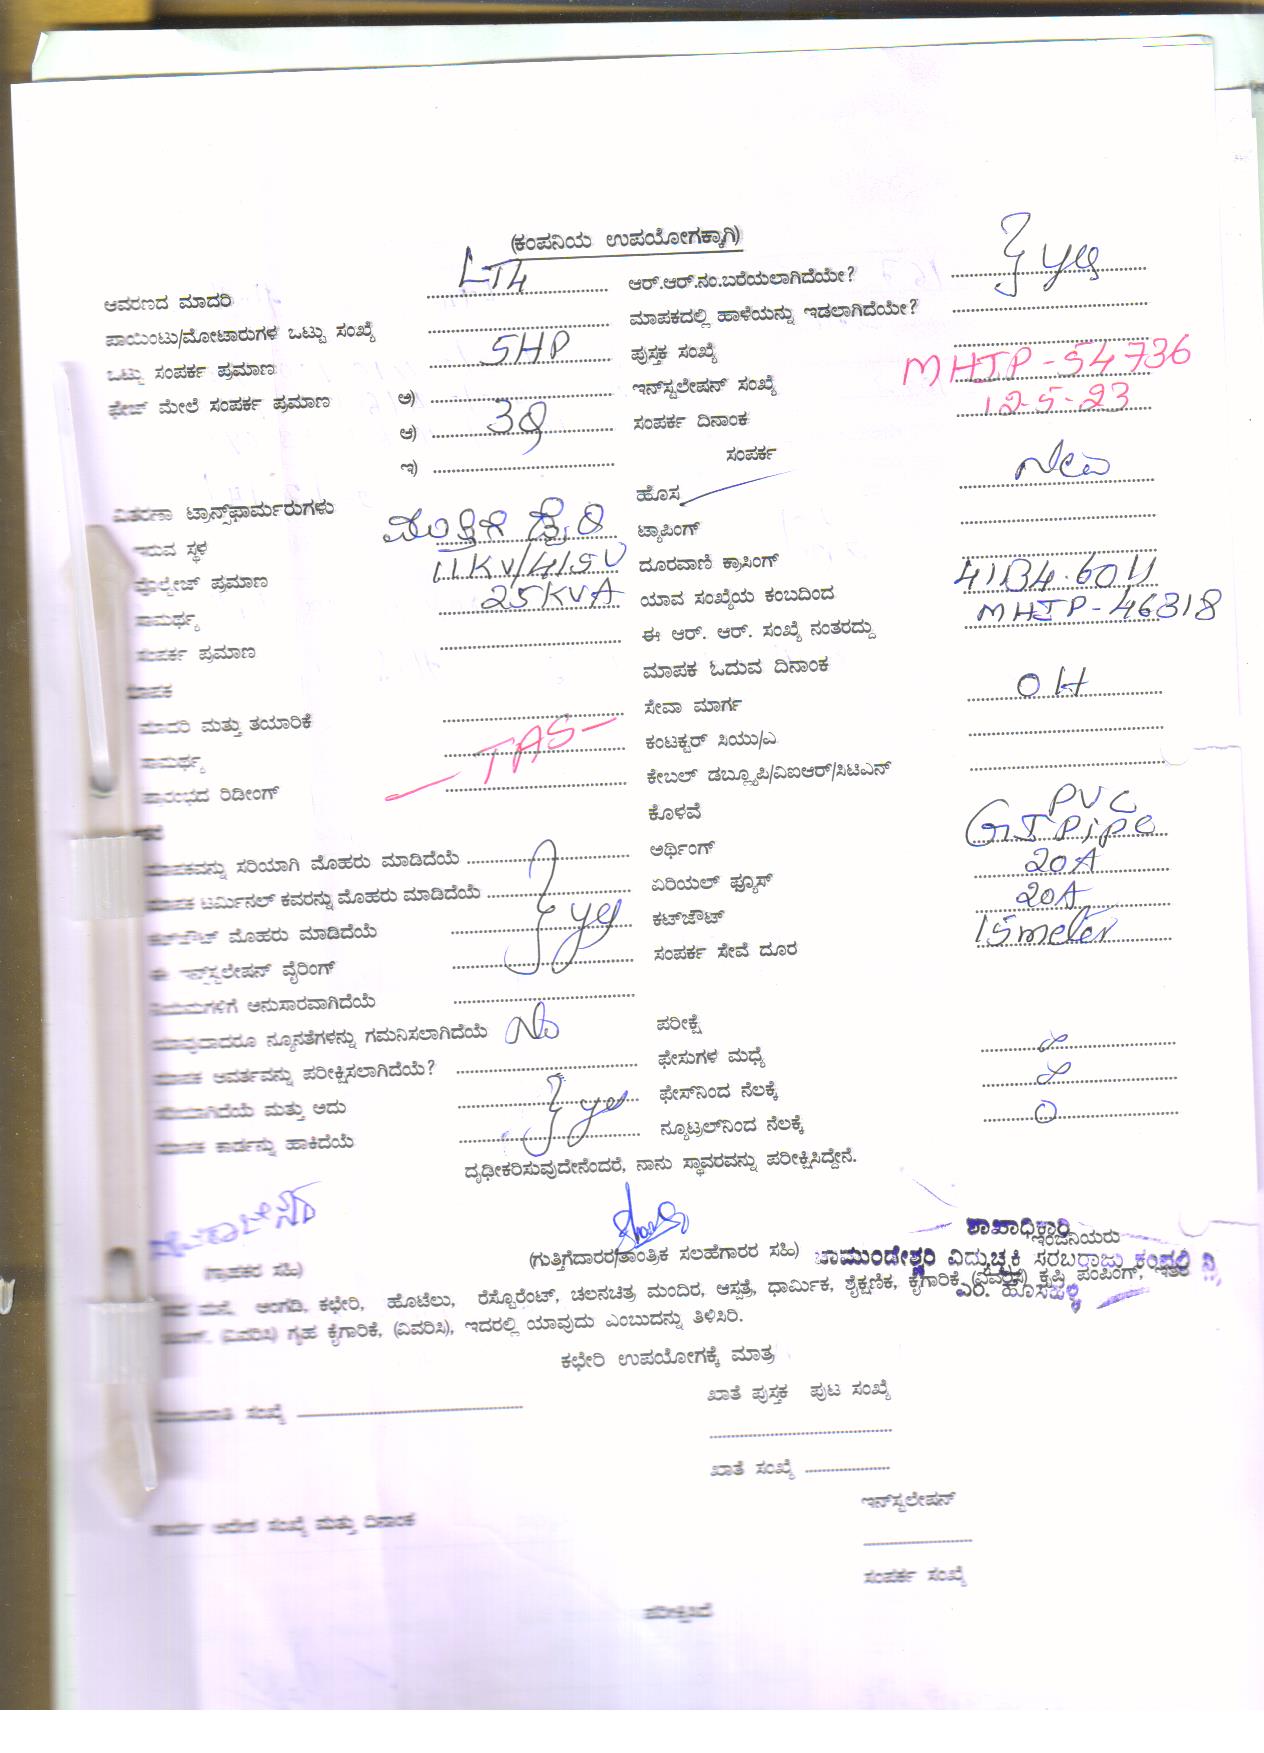 (ಕಂಪನಿಯ ಉಪಯೋಗಕ್ಕಾಗಿ)
ಆವರಣದ ಮಾದರಿ LT4 ಆರ್.ಆರ್.ನಂ.ಬರೆಯಲಾಗಿದೆಯೇ? yes
ಪಾಯಿಂಟು/ಮೋಟಾರುಗಳ ಒಟ್ಟು ಸಂಖ್ಯೆ ಮಾಪಕದಲ್ಲಿ ಹಾಳೆಯನ್ನು ಇಡಲಾಗಿದೆಯೇ?
ಒಟ್ಟು ಸಂಪರ್ಕ ಪ್ರಮಾಣ 5HP ಪುಸ್ತಕ ಸಂಖ್ಯೆ
ಫೇಜ್ ಮೇಲೆ ಸಂಪರ್ಕ ಪ್ರಮಾಣ ಅ) ಇನ್‌ಸ್ಟಲೇಷನ್ ಸಂಖ್ಯೆ MHJP-54736
ಆ) 3φ ಸಂಪರ್ಕ ದಿನಾಂಕ 12-5-23
ಇ) ಸಂಪರ್ಕ
ವಿತರಣಾ ಟ್ರಾನ್ಸ್‌ಫಾರ್ಮರುಗಳು ಹೊಸ New
ಇರುವ ಸ್ಥಳ ಟ್ಯಾಪಿಂಗ್
ವೋಲ್ಟೇಜ್ ಪ್ರಮಾಣ 11KV/415V ದೂರವಾಣಿ ಕ್ರಾಸಿಂಗ್
ಸಾಮರ್ಥ್ಯ 25KVA ಯಾವ ಸಂಖ್ಯೆಯ ಕಂಬದಿಂದ
ಸಂಪರ್ಕ ಪ್ರಮಾಣ ಈ ಆರ್. ಆರ್. ಸಂಖ್ಯೆ ನಂತರದ್ದು MHJP-46318
ಮಾಪಕ ಮಾಪಕ ಓದುವ ದಿನಾಂಕ
ಮಾದರಿ ಮತ್ತು ತಯಾರಿಕೆ ಸೇವಾ ಮಾರ್ಗ OH
ಸಾಮರ್ಥ್ಯ TAS ಕಂಟಕ್ಟರ್ ಸಿಯು/ಎ
ಪ್ರಾರಂಭದ ರಿಡೀಂಗ್ ಕೇಬಲ್ ಡಬ್ಲ್ಯೂಪಿ/ವಿಐಆರ್/ಸಿಟಿಎನ್
ಕೊಳವೆ PVC
ಮಾಪಕವನ್ನು ಸರಿಯಾಗಿ ಮೊಹರು ಮಾಡಿದೆಯೆ ಅರ್ಥಿಂಗ್ GI Pipe
ಮಾಪಕ ಟರ್ಮಿನಲ್ ಕವರನ್ನು ಮೊಹರು ಮಾಡಿದೆಯೆ ಏರಿಯಲ್ ಫ್ಯೂಸ್ 20A
ಕಟ್‌ಔಟ್ ಮೊಹರು ಮಾಡಿದೆಯೆ yes ಕಟ್‌ಔಟ್ 20A
ಈ ಇನ್‌ಸ್ಟಲೇಷನ್ ವೈರಿಂಗ್ ಸಂಪರ್ಕ ಸೇವೆ ದೂರ 15 meter
ನಿಯಮಗಳಿಗೆ ಅನುಸಾರವಾಗಿದೆಯೆ
ಯಾವುದಾದರೂ ನ್ಯೂನತೆಗಳನ್ನು ಗಮನಿಸಲಾಗಿದೆಯೆ No ಪರೀಕ್ಷೆ
ಮಾಪಕ ಆವರ್ತವನ್ನು ಪರೀಕ್ಷಿಸಲಾಗಿದೆಯೆ? ಫೇಸುಗಳ ಮಧ್ಯೆ ∞
ಸರಿಯಾಗಿದೆಯೆ ಮತ್ತು ಅದು yes ಫೇಸ್‌ನಿಂದ ನೆಲಕ್ಕೆ ∞
ಮಾಪಕ ಕಾರ್ಡನ್ನು ಹಾಕಿದೆಯೆ ನ್ಯೂಟ್ರಲ್‌ನಿಂದ ನೆಲಕ್ಕೆ 0
ದೃಢೀಕರಿಸುವುದೇನೆಂದರೆ, ನಾನು ಸ್ಥಾವರವನ್ನು ಪರೀಕ್ಷಿಸಿದ್ದೇನೆ.
ಶಾಖಾಧಿಕಾರಿ
ಇಂಜಿನಿಯರು
(ಗ್ರಾಹಕರ ಸಹಿ) (ಗುತ್ತಿಗೆದಾರರ/ತಾಂತ್ರಿಕ ಸಲಹೆಗಾರರ ಸಹಿ) ಚಾಮುಂಡೇಶ್ವರಿ ವಿದ್ಯುಚ್ಛಕ್ತಿ ಸರಬರಾಜು ಕಂಪನಿ ನಿ
ಮನೆ, ಅಂಗಡಿ, ಕಛೇರಿ, ಹೊಟೆಲು, ರೆಸ್ಟೊರೆಂಟ್, ಚಲನಚಿತ್ರ ಮಂದಿರ, ಆಸ್ಪತ್ರೆ, ಧಾರ್ಮಿಕ, ಶೈಕ್ಷಣಿಕ, ಕೈಗಾರಿಕೆ (ವಿವರಿಸಿ) ಕೃಷಿ ಪಂಪಿಂಗ್, ಇತರ
(ವಿವರಿಸಿ) ಗೃಹ ಕೈಗಾರಿಕೆ, (ವಿವರಿಸಿ), ಇದರಲ್ಲಿ ಯಾವುದು ಎಂಬುದನ್ನು ತಿಳಿಸಿರಿ.
ಕಛೇರಿ ಉಪಯೋಗಕ್ಕೆ ಮಾತ್ರ
ಖಾತೆ ಪುಸ್ತಕ ಪುಟ ಸಂಖ್ಯೆ
ಸಂಖ್ಯೆ
ಖಾತೆ ಸಂಖ್ಯೆ
ಇನ್‌ಸ್ಟಲೇಷನ್
ಕಾರ್ಯ ಆದೇಶ ಸಂಖ್ಯೆ ಮತ್ತು ದಿನಾಂಕ
ಸಂಪರ್ಕ ಸಂಖ್ಯೆ
ಪರೀಕ್ಷಿಸಿದೆ